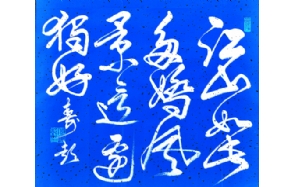 江山如此
多娇风
景这边
独好
寿彭